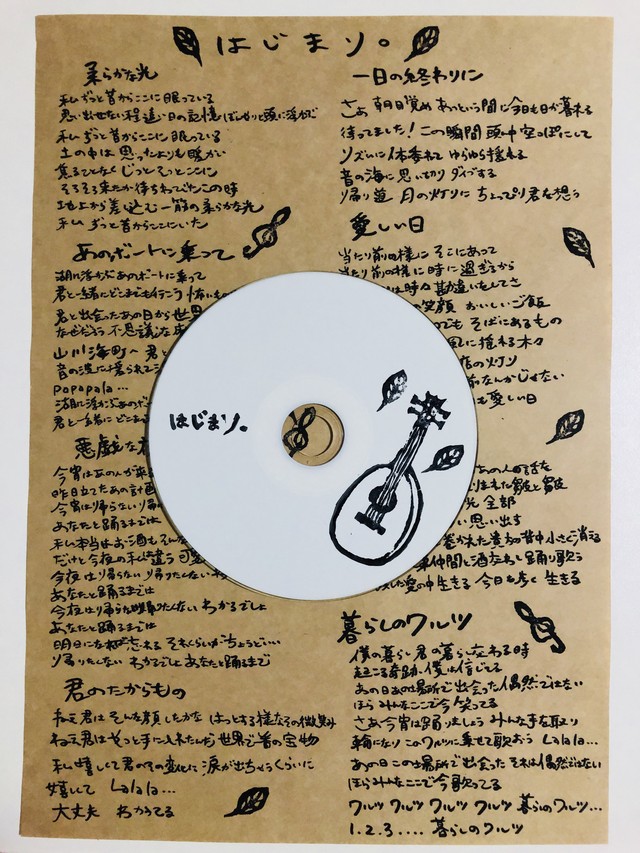 はじまり。
柔らかな光
私ずっと昔からここに眠っている
思い出せない程遠い日の記憶ぼんやりと頭に浮かぶ
私ずっと昔からここに眠っている
土の中は思ったよりも暖かい
焦ることなくじっとそっとここに
そろそろ来たか待ちわびてたこの時
地上から差し込む一筋の柔らかな光
私ずっと昔からここにいた
あのボートに乗って
湖に浮かぶあのボートに乗って
君と一緒にどこまでも行こう怖いもの
君と出会ったあの日から世界
なぜだろう不思議な
山川海町へ君と
音の波に揺られて
papapala...
湖に浮かぶあのボ
君と一緒にどこまで
悪戯な
今宵はあの人が来
昨日立てたあの計画
今宵は帰らない帰
あなたと踊るまでは
私本当はお酒も
だけど今夜の私は違う可愛
今夜は帰らない帰りたくない
あなたと踊るまでは
今夜は帰らない帰りたくないわかるでしょ
あなたと踊るまでは
明日になれば忘れるそれくらいがちょうどいい
帰りたくないわかるでしょあなたと踊るまで
君のたからもの
ねぇ君はそんな顔したかなはっとする様なその微笑み
ねぇ君はやっと手に入れたんだ世界で一番の宝物
私嬉しくて君のその変化に涙が出ちゃうくらいに
嬉しくて Lalala...
大丈夫 わかってる
一日の終わりに
さあ朝目覚めあっという間に今日も日が暮れる
待ってました!この瞬間頭ん中空っぽにして
リズムに体委ねてゆらゆら揺れる
音の海に思い切りダイブする
帰り道 月の灯りに ちょっぴり君を想う
愛しい日
当たり前の様に そこにあって
当たり前の様に時に過ぎるから
は時々勘違いをしてさ
の笑顔 おいしいご飯
でも そばにあるもの
風に揺れる木々
店の灯り
前なんかじゃない
も愛しい日
あの人の話を
まれた皺と皺
光 全部
い思い出す
かれた貴方の背中小さく消える
仲間と酒を交わし踊り歌う
した愛の中生きる 今日も歩く 生きる
暮らしのワルツ
僕の暮らし君の暮らし交わる時
起こる奇跡、僕は信じてる
あの日あの場所で出会った偶然ではない
ほらみんなここで今笑ってる
さあ今宵は踊りましょうみんな手を取り
輪になりこのワルツに乗せて歌おう Lalala...
あの日この場所で出会ったそれは偶然ではない
ほらみんなここで今歌ってる
ワルツワルツワルツワルツ暮らしのワルツ...
1.2.3.... 暮らしのワルツ
はじまり。